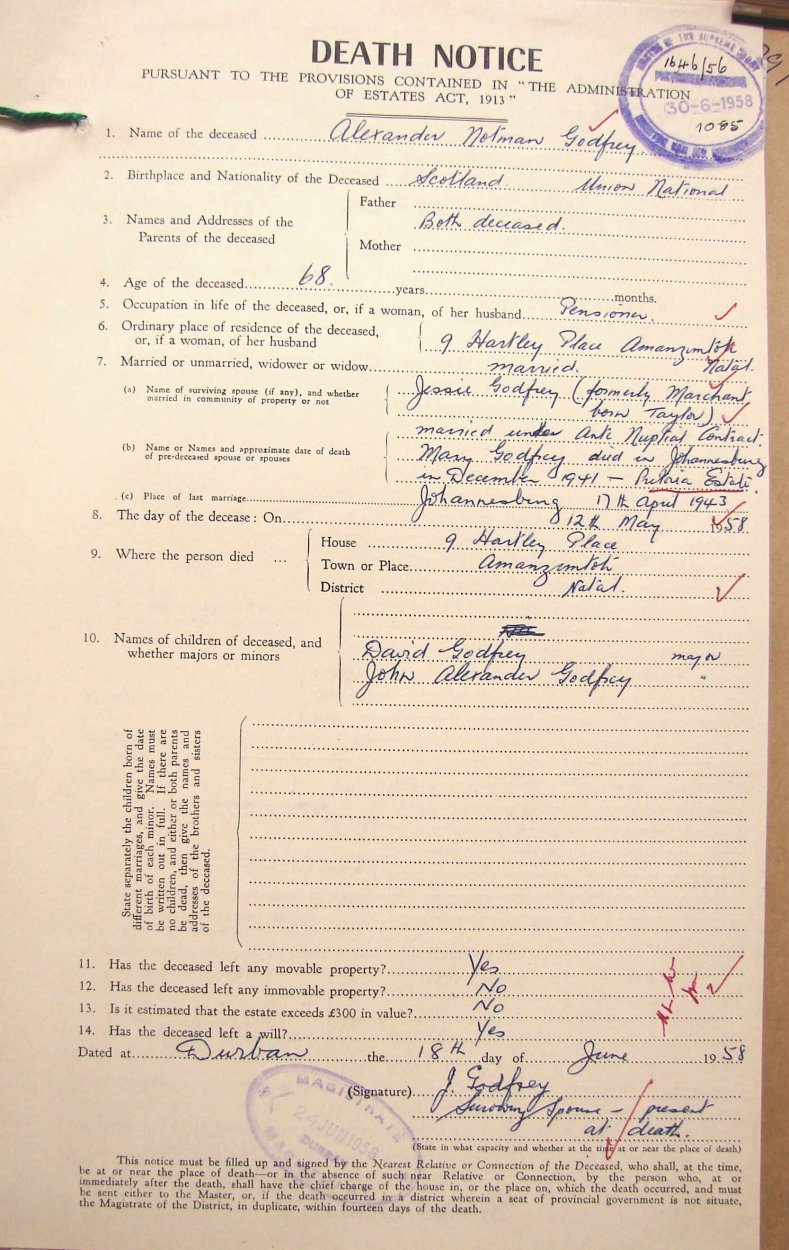 DEATH NOTICE
PURSUANT TO THE PROVISIONS CONTAINED IN "THE ADMINISTRATION
OF ESTATES ACT, 1913"
1646/56
30-6-1958
1085
1. Name of the deceased Alexander Notman Godfrey.
2. Birthplace and Nationality of the Deceased Scotland. Union National
3. Names and Addresses of the Parents of the deceased
Father
Both deceased.
Mother
4. Age of the deceased 68 years months.
5. Occupation in life of the deceased, or, if a woman, of her husband Pensioner.
6. Ordinary place of residence of the deceased,
or, if a woman, of her husband
9 Hartley Place Amanzimtoti
Natal.
7. Married or unmarried, widower or widow married.
(a) Name of surviving spouse (if any), and whether
married in community of property or not
Jessie Godfrey (formerly Marchant
born Taylor)
married under Ante Nuptial Contract.
(b) Name or Names and approximate date of death
of pre-deceased spouse or spouses
Mary Godfrey died in Johannesburg
in December 1941 – Pretoria Estate.
(c) Place of last marriage Johannesburg 17th April 1943
8. The day of the decease: On 12th May 1958
9. Where the person died ...
House 9 Hartley Place
Town or Place Amanzimtoti
District Natal.
10. Names of children of deceased, and
whether majors or minors
David Godfrey major
John Alexander Godfrey "
State separately the children born of
different marriages, and give the date
of birth of each minor. Names must
be written out in full. If there are
no children, and either or both parents
be dead, then give the names and
addresses of the brothers and sisters
of the deceased.
11. Has the deceased left any movable property? Yes
12. Has the deceased left any immovable property? No
13. Is it estimated that the estate exceeds £300 in value? No
14. Has the deceased left a will? Yes
Dated at Durban the 18th day of June 1958
(Signature) J. Godfrey
Surviving Spouse – present
at death.
(State in what capacity and whether at the time at or near the place of death)
MAGISTRATE
24 JUN 1958
DURBAN
This notice must be filled up and signed by the Nearest Relative or Connection of the Deceased, who shall, at the time,
be at or near the place of death—or in the absence of such near Relative or Connection, by the person who, at or
immediately after the death, shall have the chief charge of the house in, or the place on, which the death occurred, and must
be sent either to the Master, or, if the death occurred in a district wherein a seat of provincial government is not situate,
the Magistrate of the District, in duplicate, within fourteen days of the death.